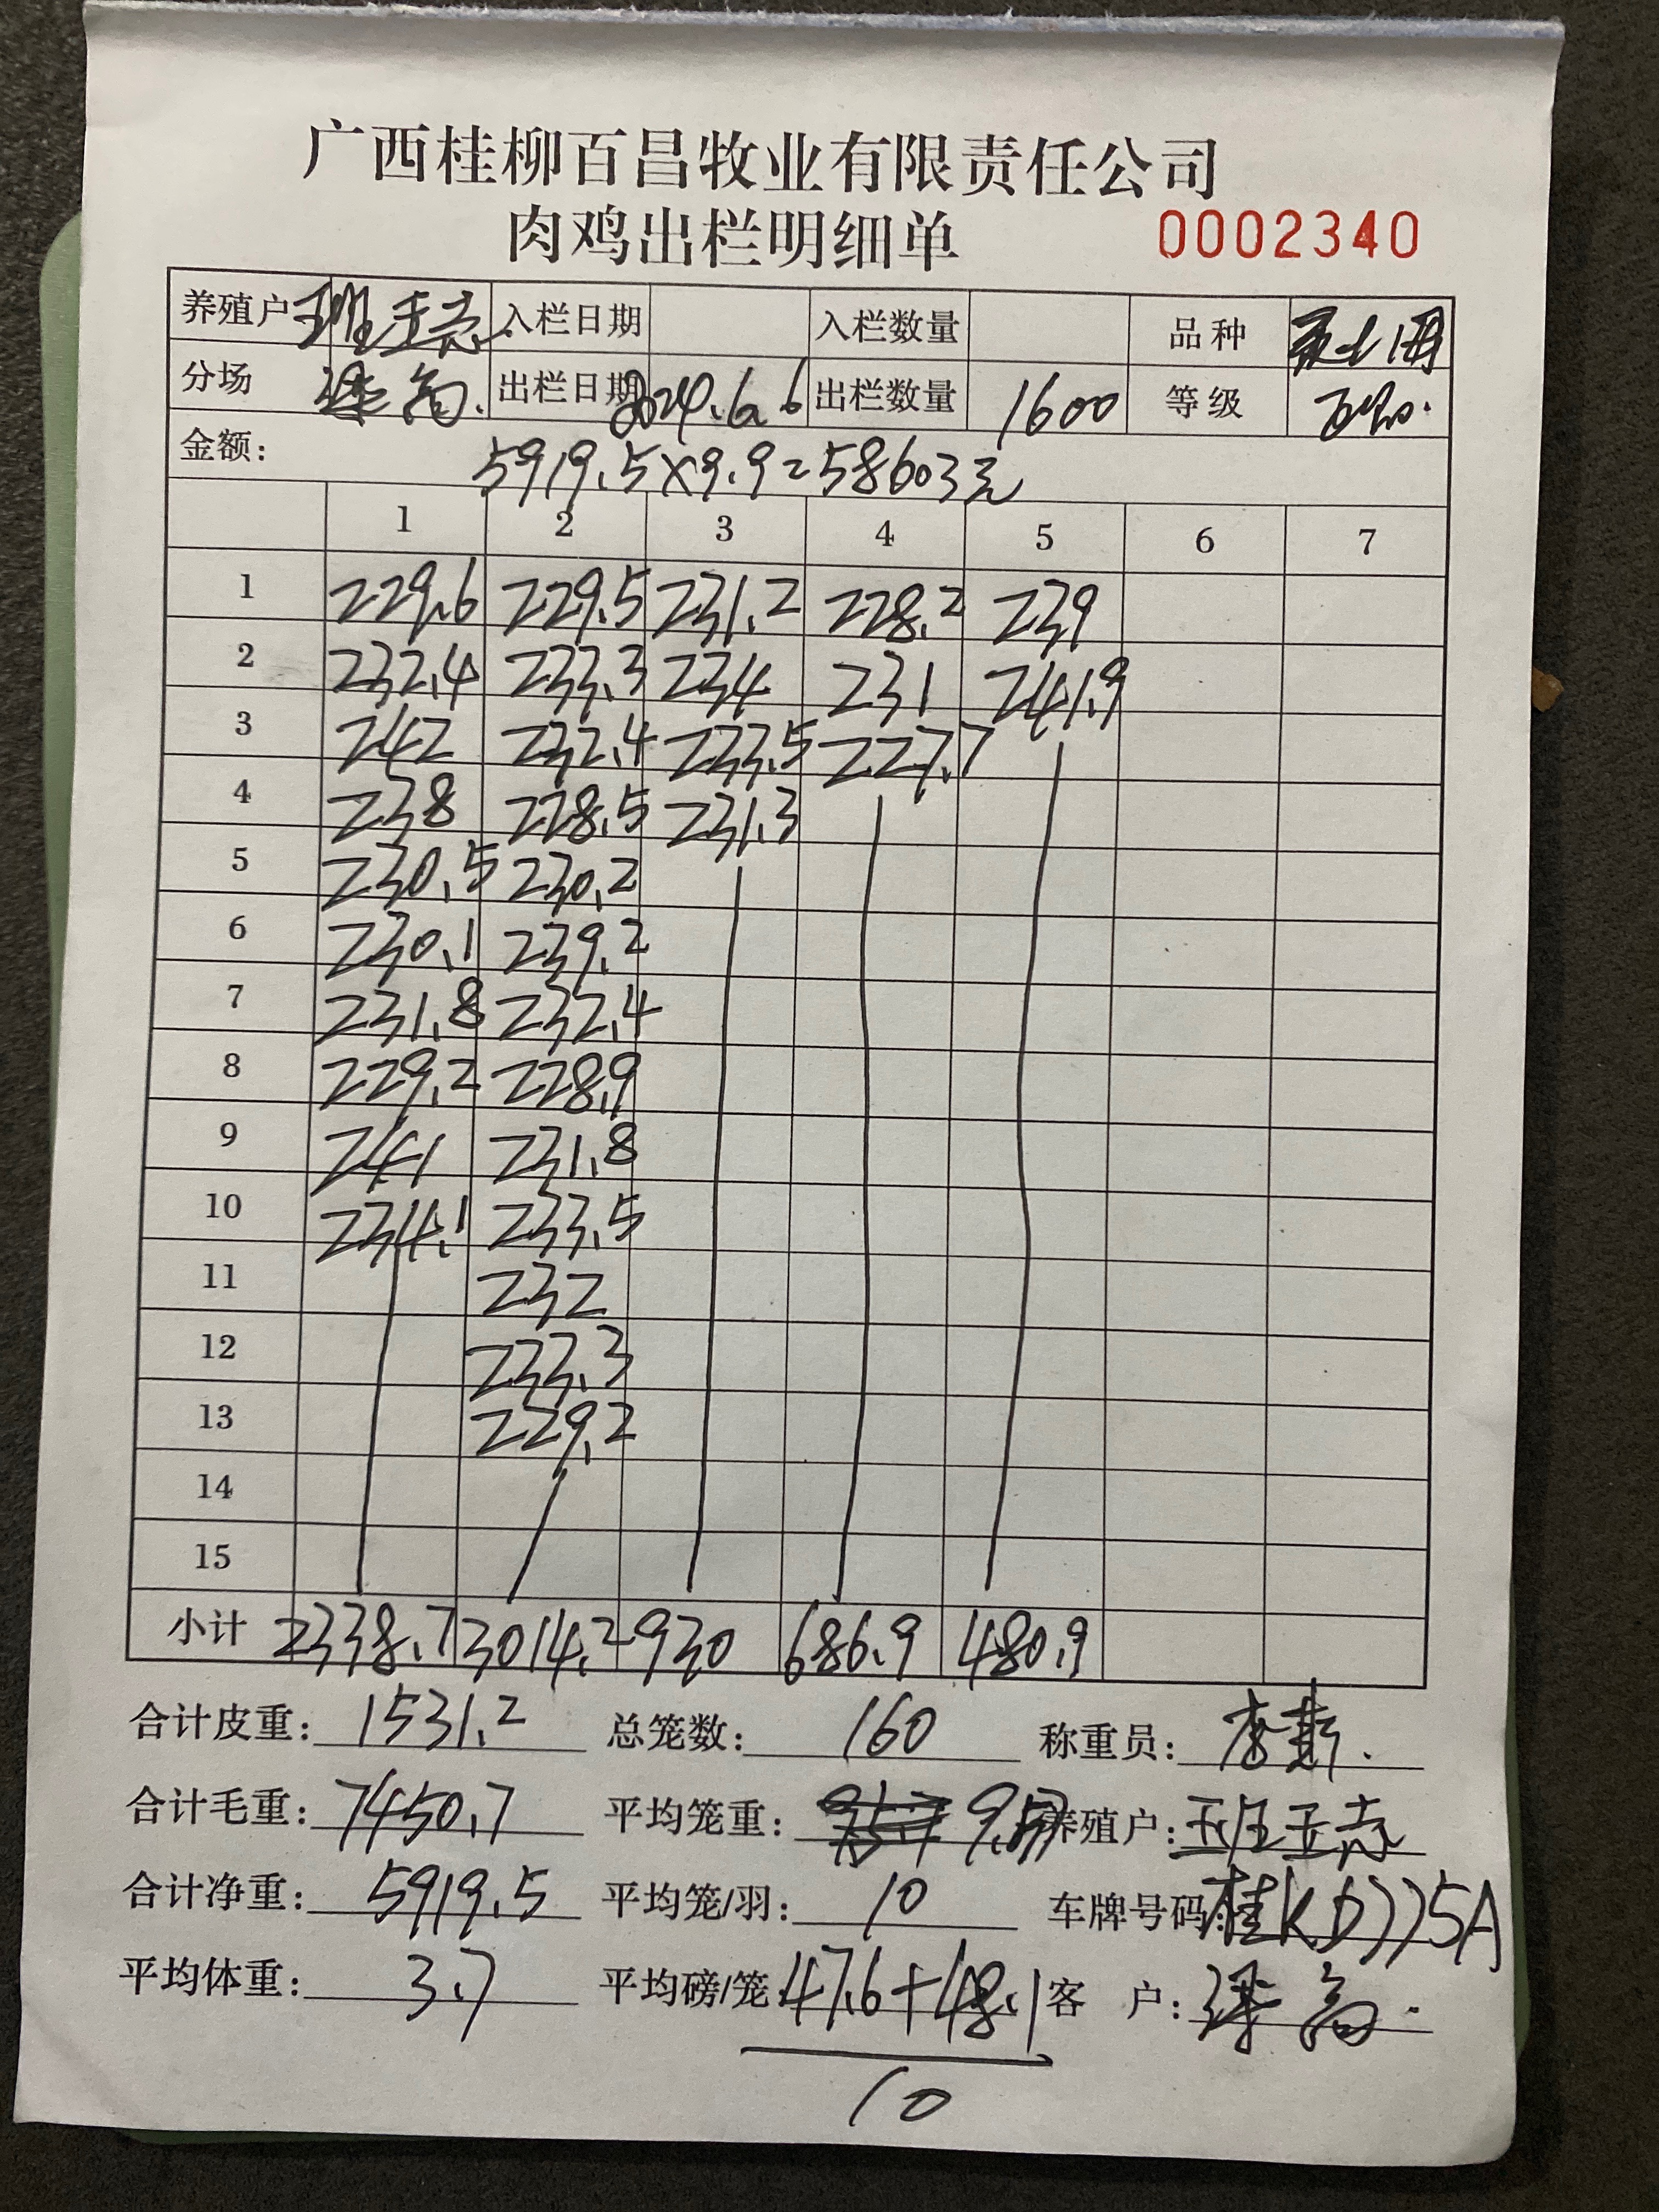 广西桂柳百昌牧业有限责任公司
肉鸡出栏明细单 0002340
养殖户 班玉志 入栏日期 入栏数量 品种
分场 出栏日期 2024.6.6 出栏数量 1600 等级
金额: 5919.5×9.9=58603元
1 2 3 4 5 6 7
1 229.6 229.5 231.2 228.2 239
2 232.4 233.3 234 231 241.9
3 242 232.4 233.5 227.7
4 238 228.5 231.3
5 230.5 230.2
6 230.1 239.2
7 231.8 232.4
8 229.2 228.9
9 241 231.8
10 234.1 233.5
11 232
12 233.3
13 229.2
14
15
小计 2338.7 3014.2 930 686.9 480.9
合计皮重: 1531.2 总笼数: 160 称重员:
合计毛重: 7450.7 平均笼重: 9.57 养殖户: 班玉志
合计净重: 5919.5 平均笼/羽: 10 车牌号码: 桂KD775A
平均体重: 3.7 平均磅/笼 47.6+48.1 客 户:
10